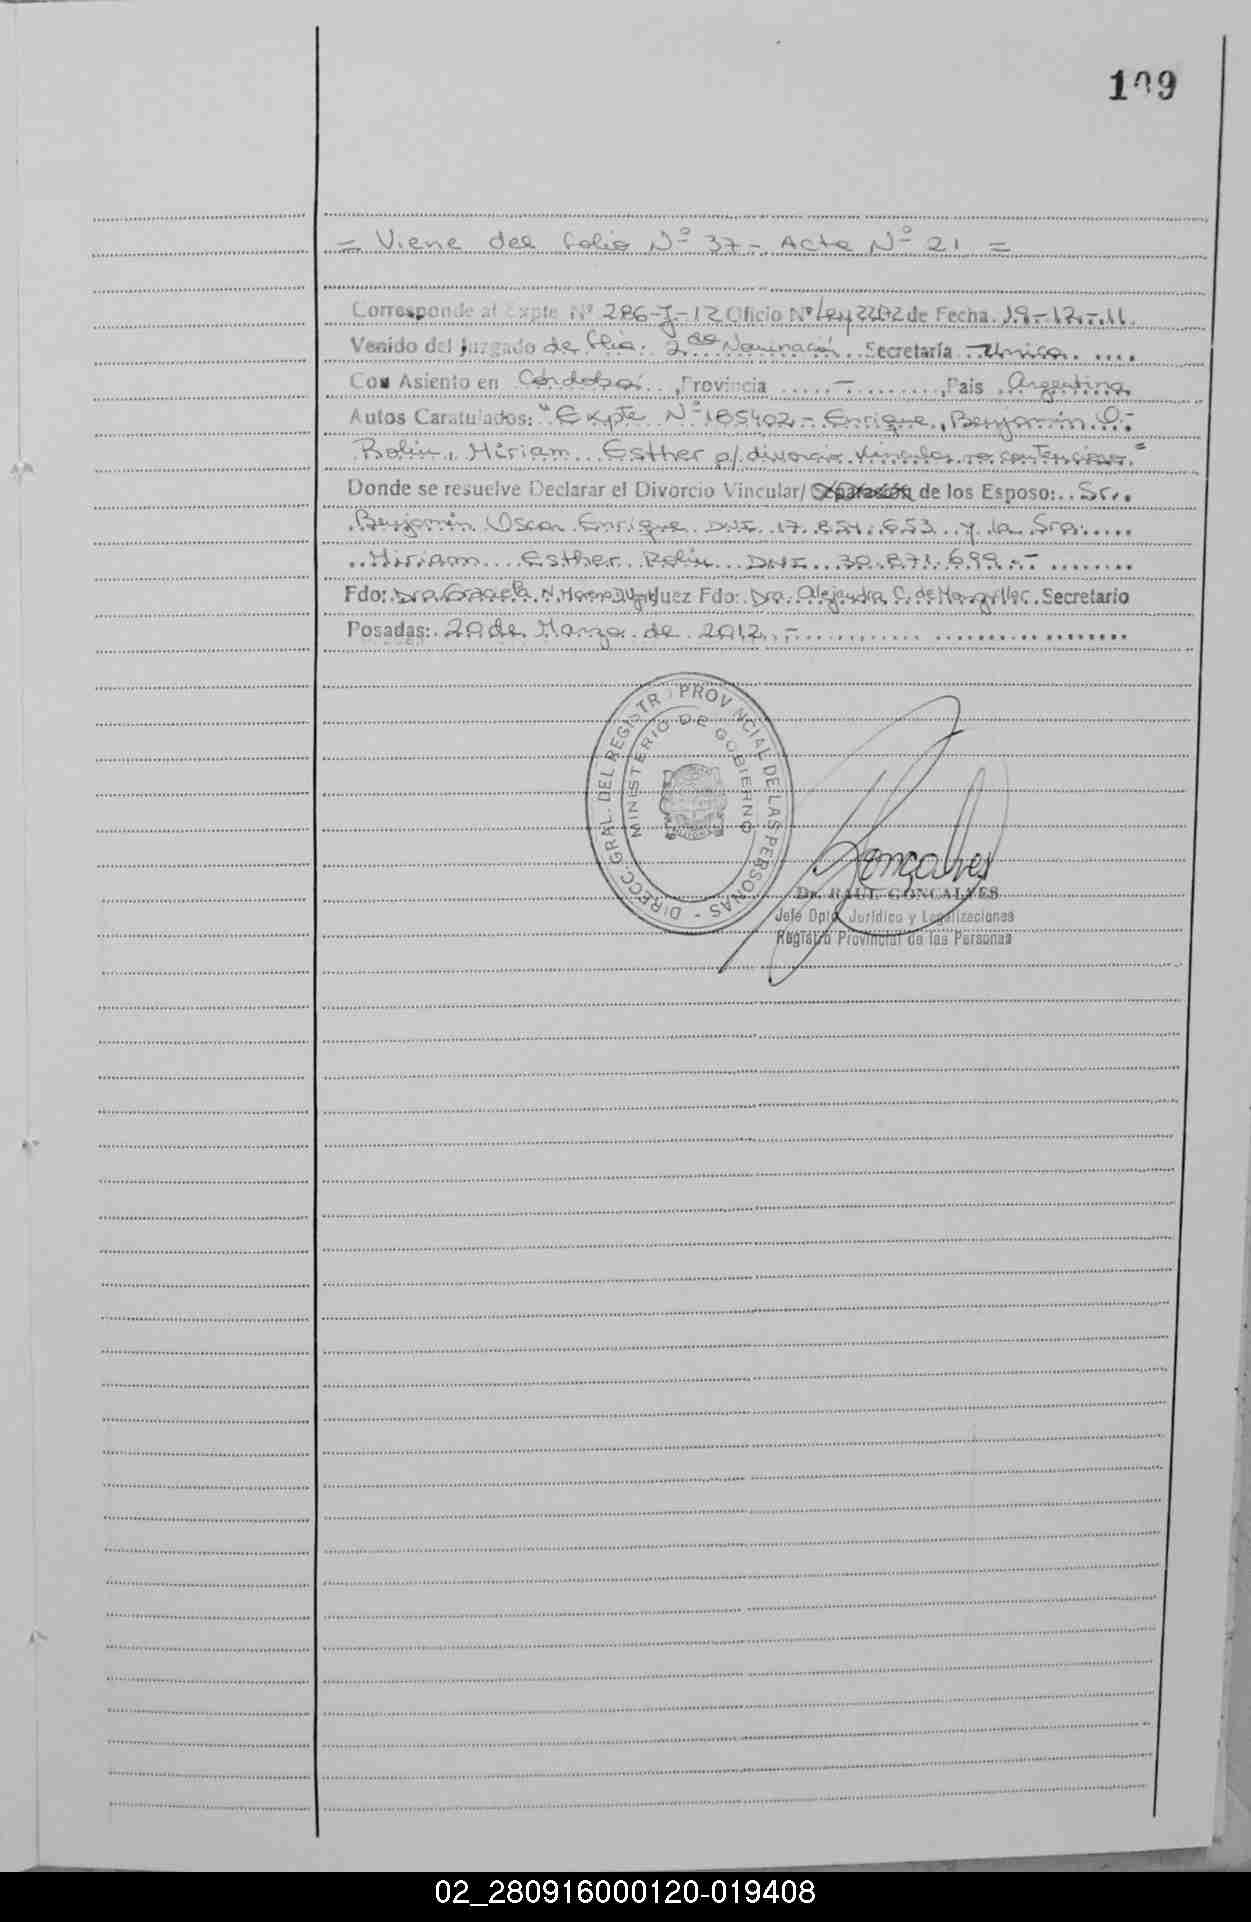 109
= Viene del folio Nº 37 - Acta Nº 21 =
Corresponde al Expte Nº 286-J-12 Oficio Nº Ley 22172 de Fecha. 19-12-11.
Venido del Juzgado de Flia. 2da Nominación. Secretaría Única.
Con Asiento en Córdoba, Provincia - , Pais Argentina
Autos Caratulados: "Expte Nº 185402 - Enrique, Benjamín O.-
Rolin, Miriam Esther p/ divorcio vincular no contencioso"
Donde se resuelve Declarar el Divorcio Vincular/ Separación de los Esposo: Sr.
Benjamín Oscar Enrique DNI 17.851.653 y la Sra
Miriam Esther Rolin DNI 30.871.699.-
Fdo: Dra. M. Moreno Juez Fdo: Dra. Alejandra C. de Secretario
Posadas: 20 de Marzo de 2012.-
DIRECC. GRAL. DEL REGISTR PROVINCIAL DE LAS PERSONAS -
MINISTERIO DE GOBIERNO
Gonçalves
Dr. RAUL GONCALVES
Jefe Dpto. Jurídico y Legalizaciones
Registro Provincial de las Personas
02_280916000120-019408